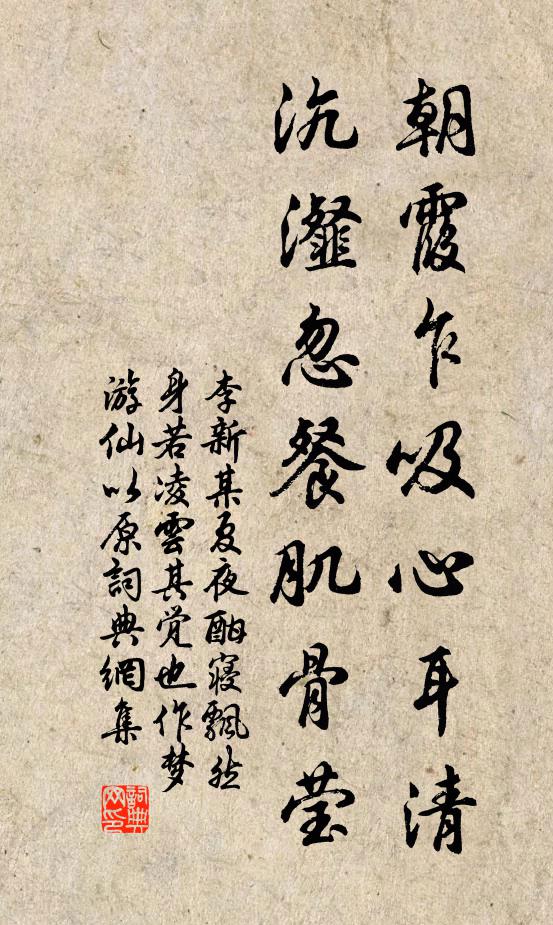 朝霞乍吸心耳清
沆瀣忽餐肌骨莹
李新某夏夜酣寝飄然
身若凌雲其觉也作梦
游仙以原詞典網集
詞典网印